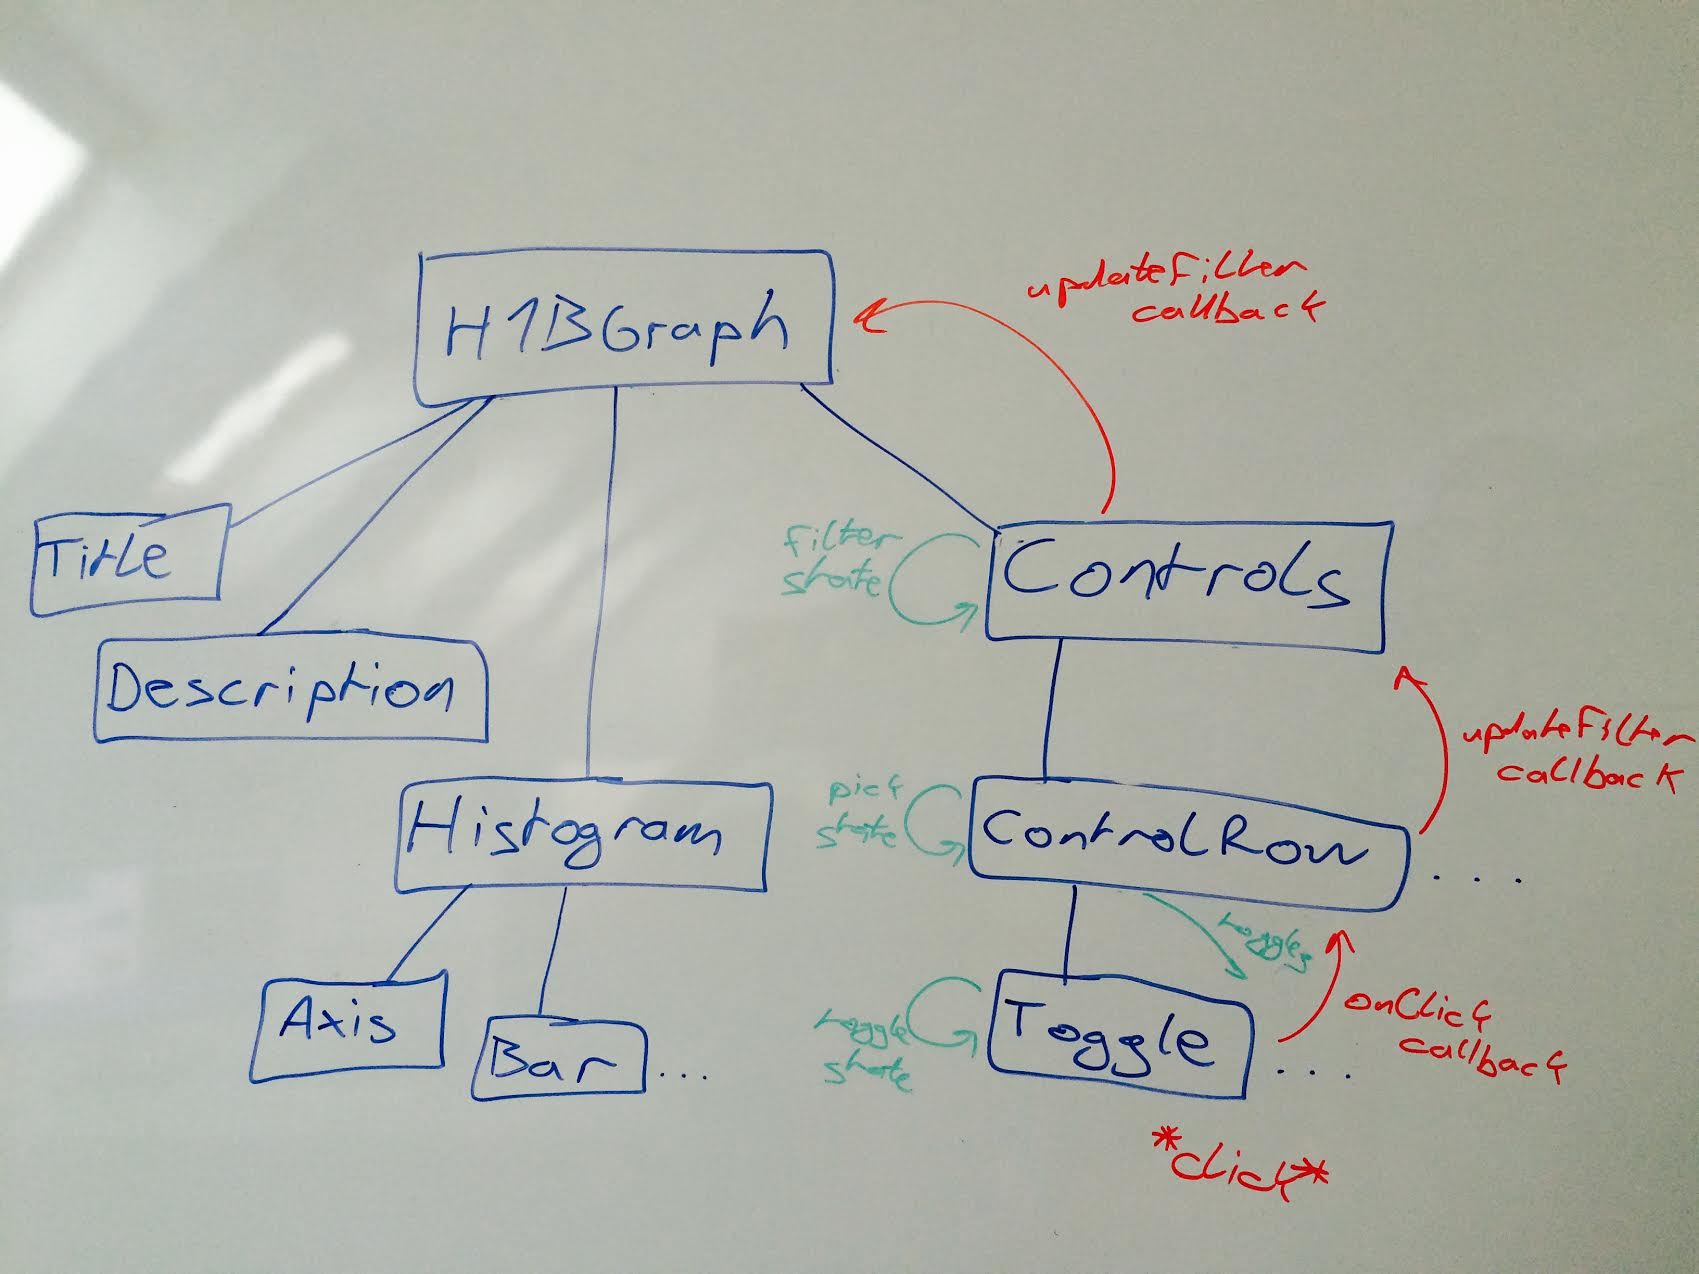 H1BGraph
updateFilter
callback
Title
Description
filter
state
Controls
updateFilter
callback
Histogram
pick
state
ControlRow
...
toggles
Axis
Bar
...
toggle
state
Toggle
...
onClick
callback
*click*